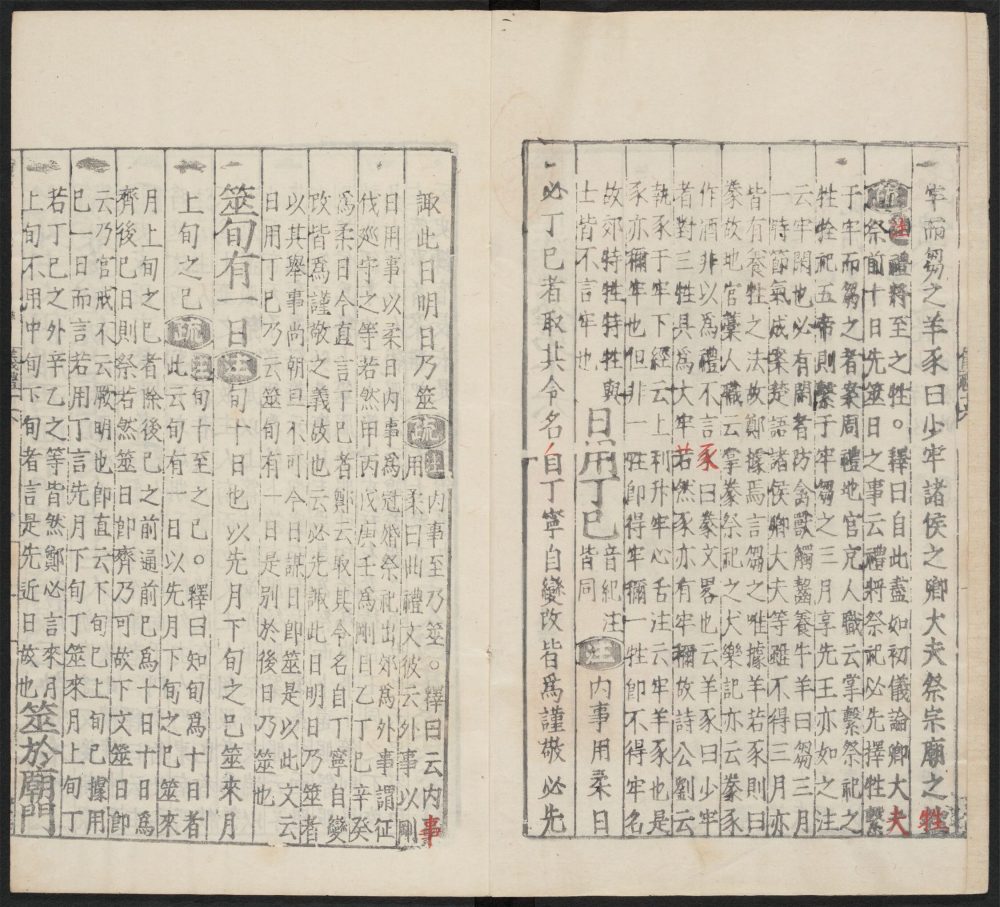 宰而芻之羊豕曰少牢諸侯之卿大夫祭宗廟之牲
疏注禮將至之牲。釋曰自此盡如初儀論卿大夫
祭前十日先筮日之事云禮將祭祀必先擇牲繫
于牢而芻之者案周禮地官充人職云掌繫祭祀之
牲牷祀五帝則繫于牢芻之三月享先王亦如之注
云牢閑也必有閑者防禽獸觸齧養牛羊曰芻三月
一時節氣成案楚語諸侯卿大夫等雖不得三月亦
皆有養牲之法故鄭據焉言芻之唯據羊若豕則曰
豢故地官槀人職云掌豢祭祀之犬樂記亦云豢豕
作酒非以為禮不言豕曰豢文畧也云羊豕曰少牢
者對三牲具為大牢若然豕亦有牢稱故詩公劉云
執豕于牢下經云上利升牢心舌注云牢羊豕也是
豕亦稱牢也但非一牲卽得牢稱一牲卽不得牢名
故郊特牲特牲與
士皆不言牢也
日用丁巳音紀注皆同
注內事用柔日
必丁巳者取其令名自丁寧自變改皆為謹敬必先
諏此日明日乃筮疏注內事至乃筮。釋曰云內事
用柔日曲禮文彼云外事以剛
日用事以柔日內事為冠婚祭祀出郊為外事謂征
伐巡守之等若然甲丙戊庚壬為剛日乙丁巳辛癸
為柔日今直言丁巳者鄭云取其令名自丁寧自變
改皆為謹敬之義故也云必先諏此日明日乃筮者
以其舉事尚朝旦不可今日謀日卽筮是以此文云
日用丁巳乃云筮旬有一日是別於後日乃筮也
筮旬有一日注旬十日也以先月下旬之巳筮來月
上旬之巳疏注旬十至之巳。釋曰知旬為十日者
此云旬有一日以先月下旬之巳筮來
月上旬之巳者除後巳之前通前巳為十日十日為
齊後巳日則祭若然筮日卽齊乃可故下文筮日卽
云乃官戒不云厥明也卽直云下旬巳上旬巳據用
巳一日而言若用丁言先月下旬丁筮來月上旬丁
若丁巳之外辛乙之等皆然鄭必言來月
上旬不用中旬下旬者言是先近日故也筮於廟門